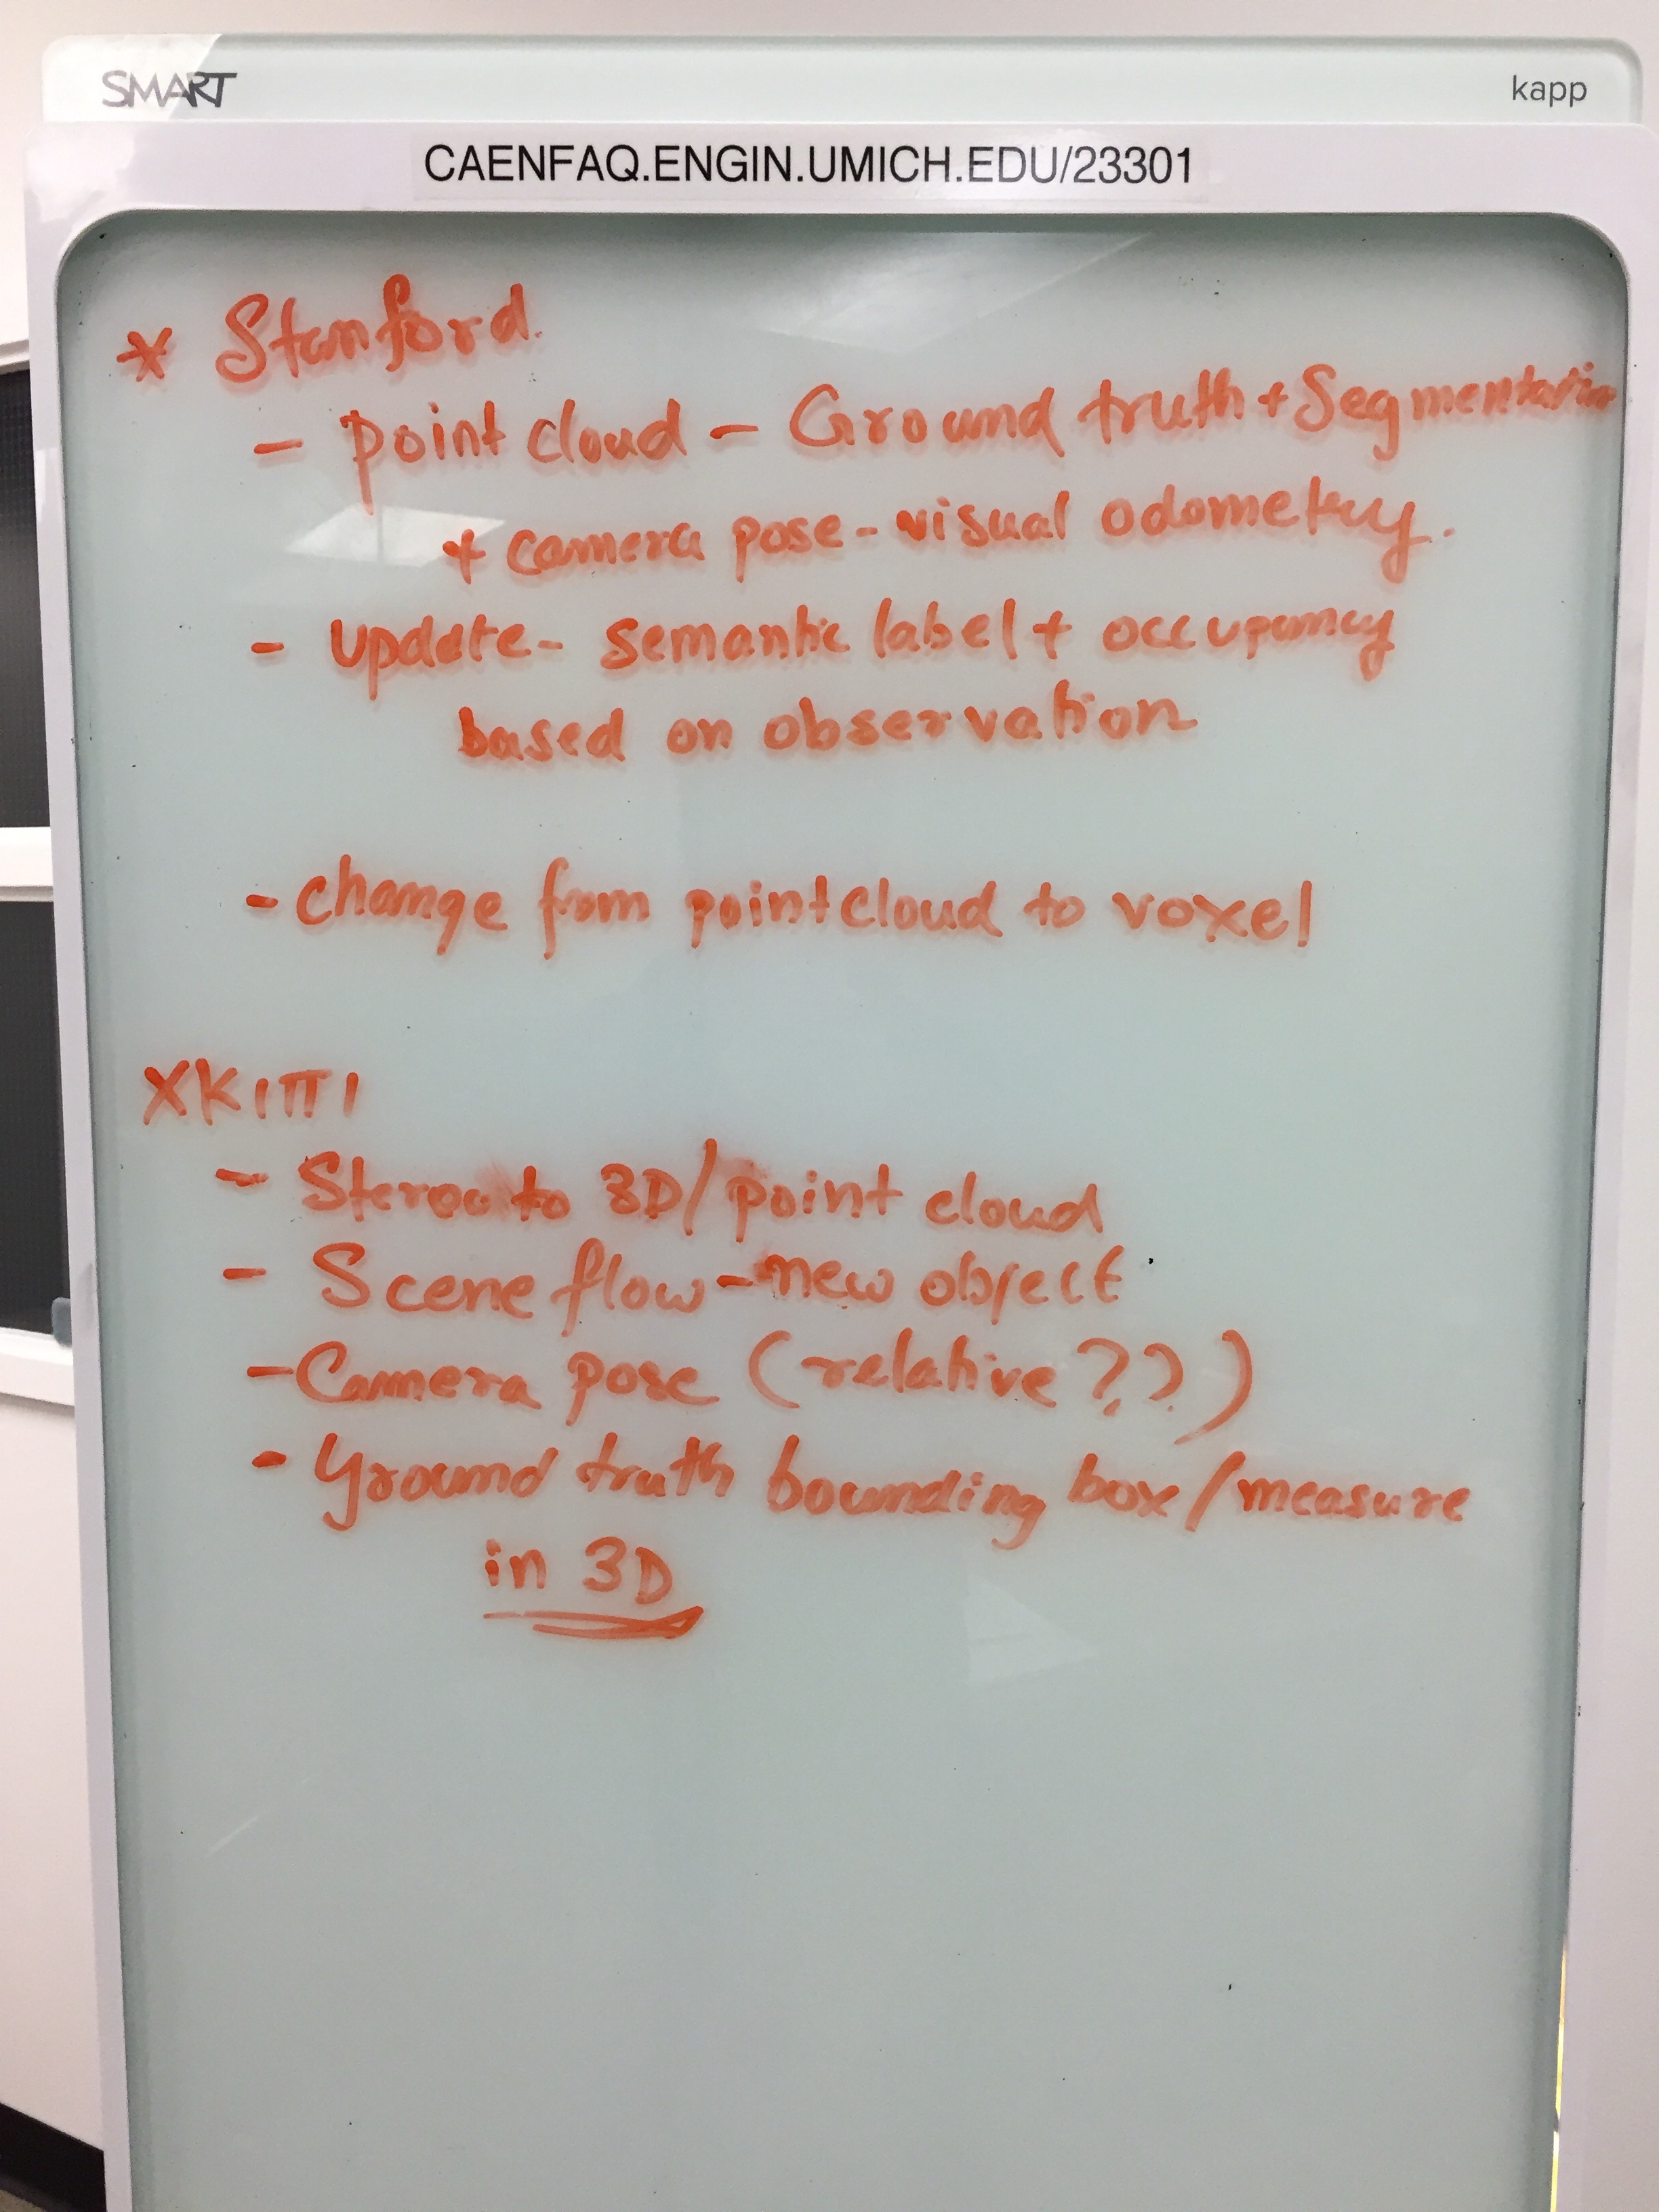 SMART kapp
CAENFAQ.ENGIN.UMICH.EDU/23301
* Stanford.
- point cloud - Ground truth + Segmentation
+ camera pose - visual odometry.
- update - semantic label + occupancy
based on observation
- change from pointcloud to voxel
X KITTI
- Stereo to 3D/point cloud
- Scene flow - new object
- Camera pose (relative ??)
- Ground truth bounding box/measure
in 3D